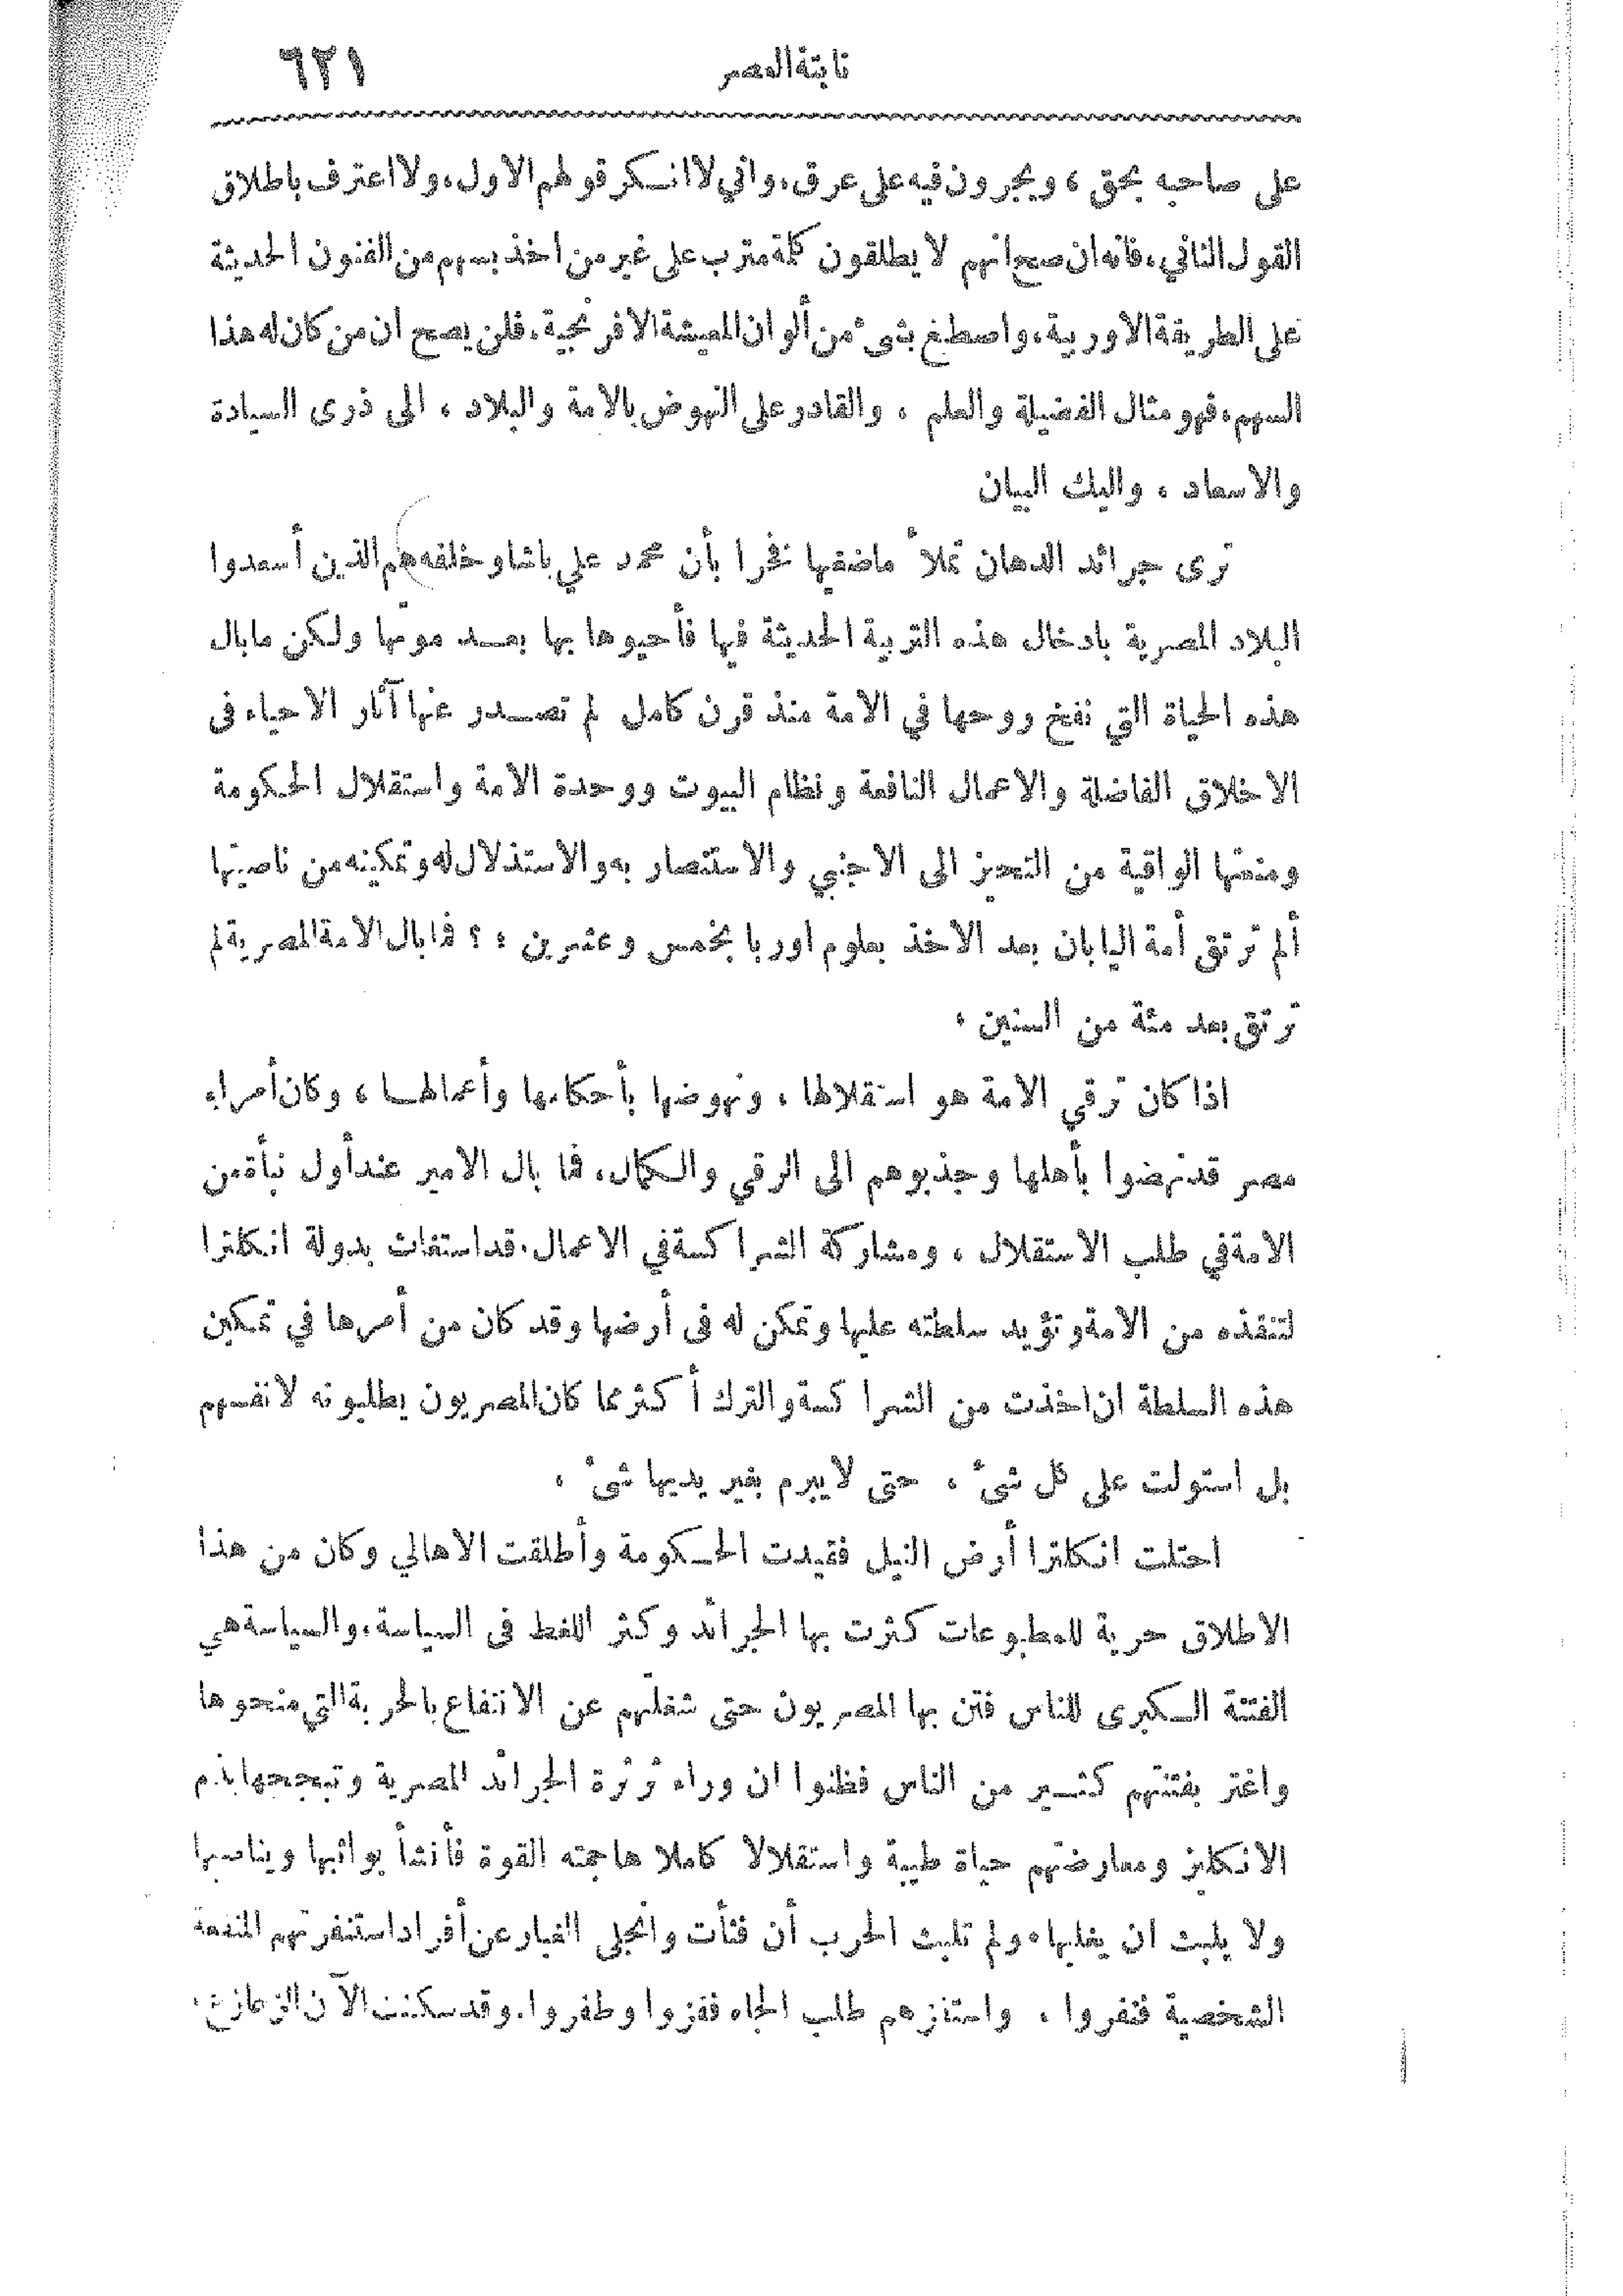 نابتة العصر
٦٢١
على صاحبه بحق ، ويجرون فيه على عرق ، واني لا انكر قولهم الاول ، ولا اعترف باطلاق
القول الثاني ، فانه ان صح انهم لا يطلقون كلمة مترب على غير من اخذ بسهم من الفنون الحديثة
على الطريقة الاوربية ، واصطبغ بشىء من ألوان المعيشة الافرنجية ، فلن يصح ان من كان له هذا
السهم ، فهو مثال الفضيلة والعلم ، والقادر على النهوض بالامة والبلاد ، الى ذرى السيادة
والاسعاد ، واليك البيان
ترى جرائد الدهان تملأ ماضغيها فخرا بأن محمد علي باشا وخلفه هم الذين أسعدوا
البلاد المصرية بادخال هذه التربية الحديثة فيها فأحيوها بها بعد موتها ولكن مابال
هذه الحياة التي نفخ روحها في الامة منذ قرن كامل لم تصدر عنها آثار الاحياء فى
الاخلاق الفاضلة والاعمال النافعة ونظام البيوت ووحدة الامة واستقلال الحكومة
ومنعتها الواقية من التحيز الى الاجنبي والاستنصار به والاستذلال له وتمكينه من ناصيتها
ألم ترتق أمة اليابان بعد الاخذ بعلوم اوربا بخمس وعشرين ؛ ؟ فما بال الامة المصرية لم
ترتق بعد مئة من السنين ،
اذا كان ترقي الامة هو استقلالها ، ونهوضها بأحكامها وأعمالها ، وكان أمراء
مصر قد نهضوا بأهلها وجذبوهم الى الرقي والكمال ، فما بال الامير عند أول نبأة من
الامة في طلب الاستقلال ، ومشاركة الشراكسة في الاعمال . قد استغاث بدولة انكلترا
لتنقذه من الامة وتؤيد سلطته عليها وتمكن له فى أرضها وقد كان من أمرها في تمكين
هذه السلطة ان اخذت من الشراكسة والترك أكثر مما كان المصريون يطلبونه لانفسهم
بل استولت على كل شىء ، حتى لا يبرم بغير يديها شىء ،
احتلت انكلترا أرض النيل فقيدت الحكومة وأطلقت الاهالي وكان من هذا
الاطلاق حرية للمطبوعات كثرت بها الجرائد وكثر اللغط فى السياسة ، والسياسة هي
الفتنة الكبرى للناس فتن بها المصريون حتى شغلتهم عن الانتفاع بالحرية التي منحوها
واغتر بفتنتهم كثير من الناس فظنوا ان وراء ثرثرة الجرائد المصرية وتبجحها بذم
الانكليز ومعارضتهم حياة طيبة واستقلالا كاملا هاجمته القوة فأنشأ يواثبها ويناصبها
ولا يلبث ان يغلبها . ولم تلبث الحرب أن فثأت وانجلى الغبار عن أفراد استنفرتهم المنفعة
الشخصية فنفروا ، واستفزهم طلب الجاه ففزوا وطفروا . وقد سكنت الآن الزعازع